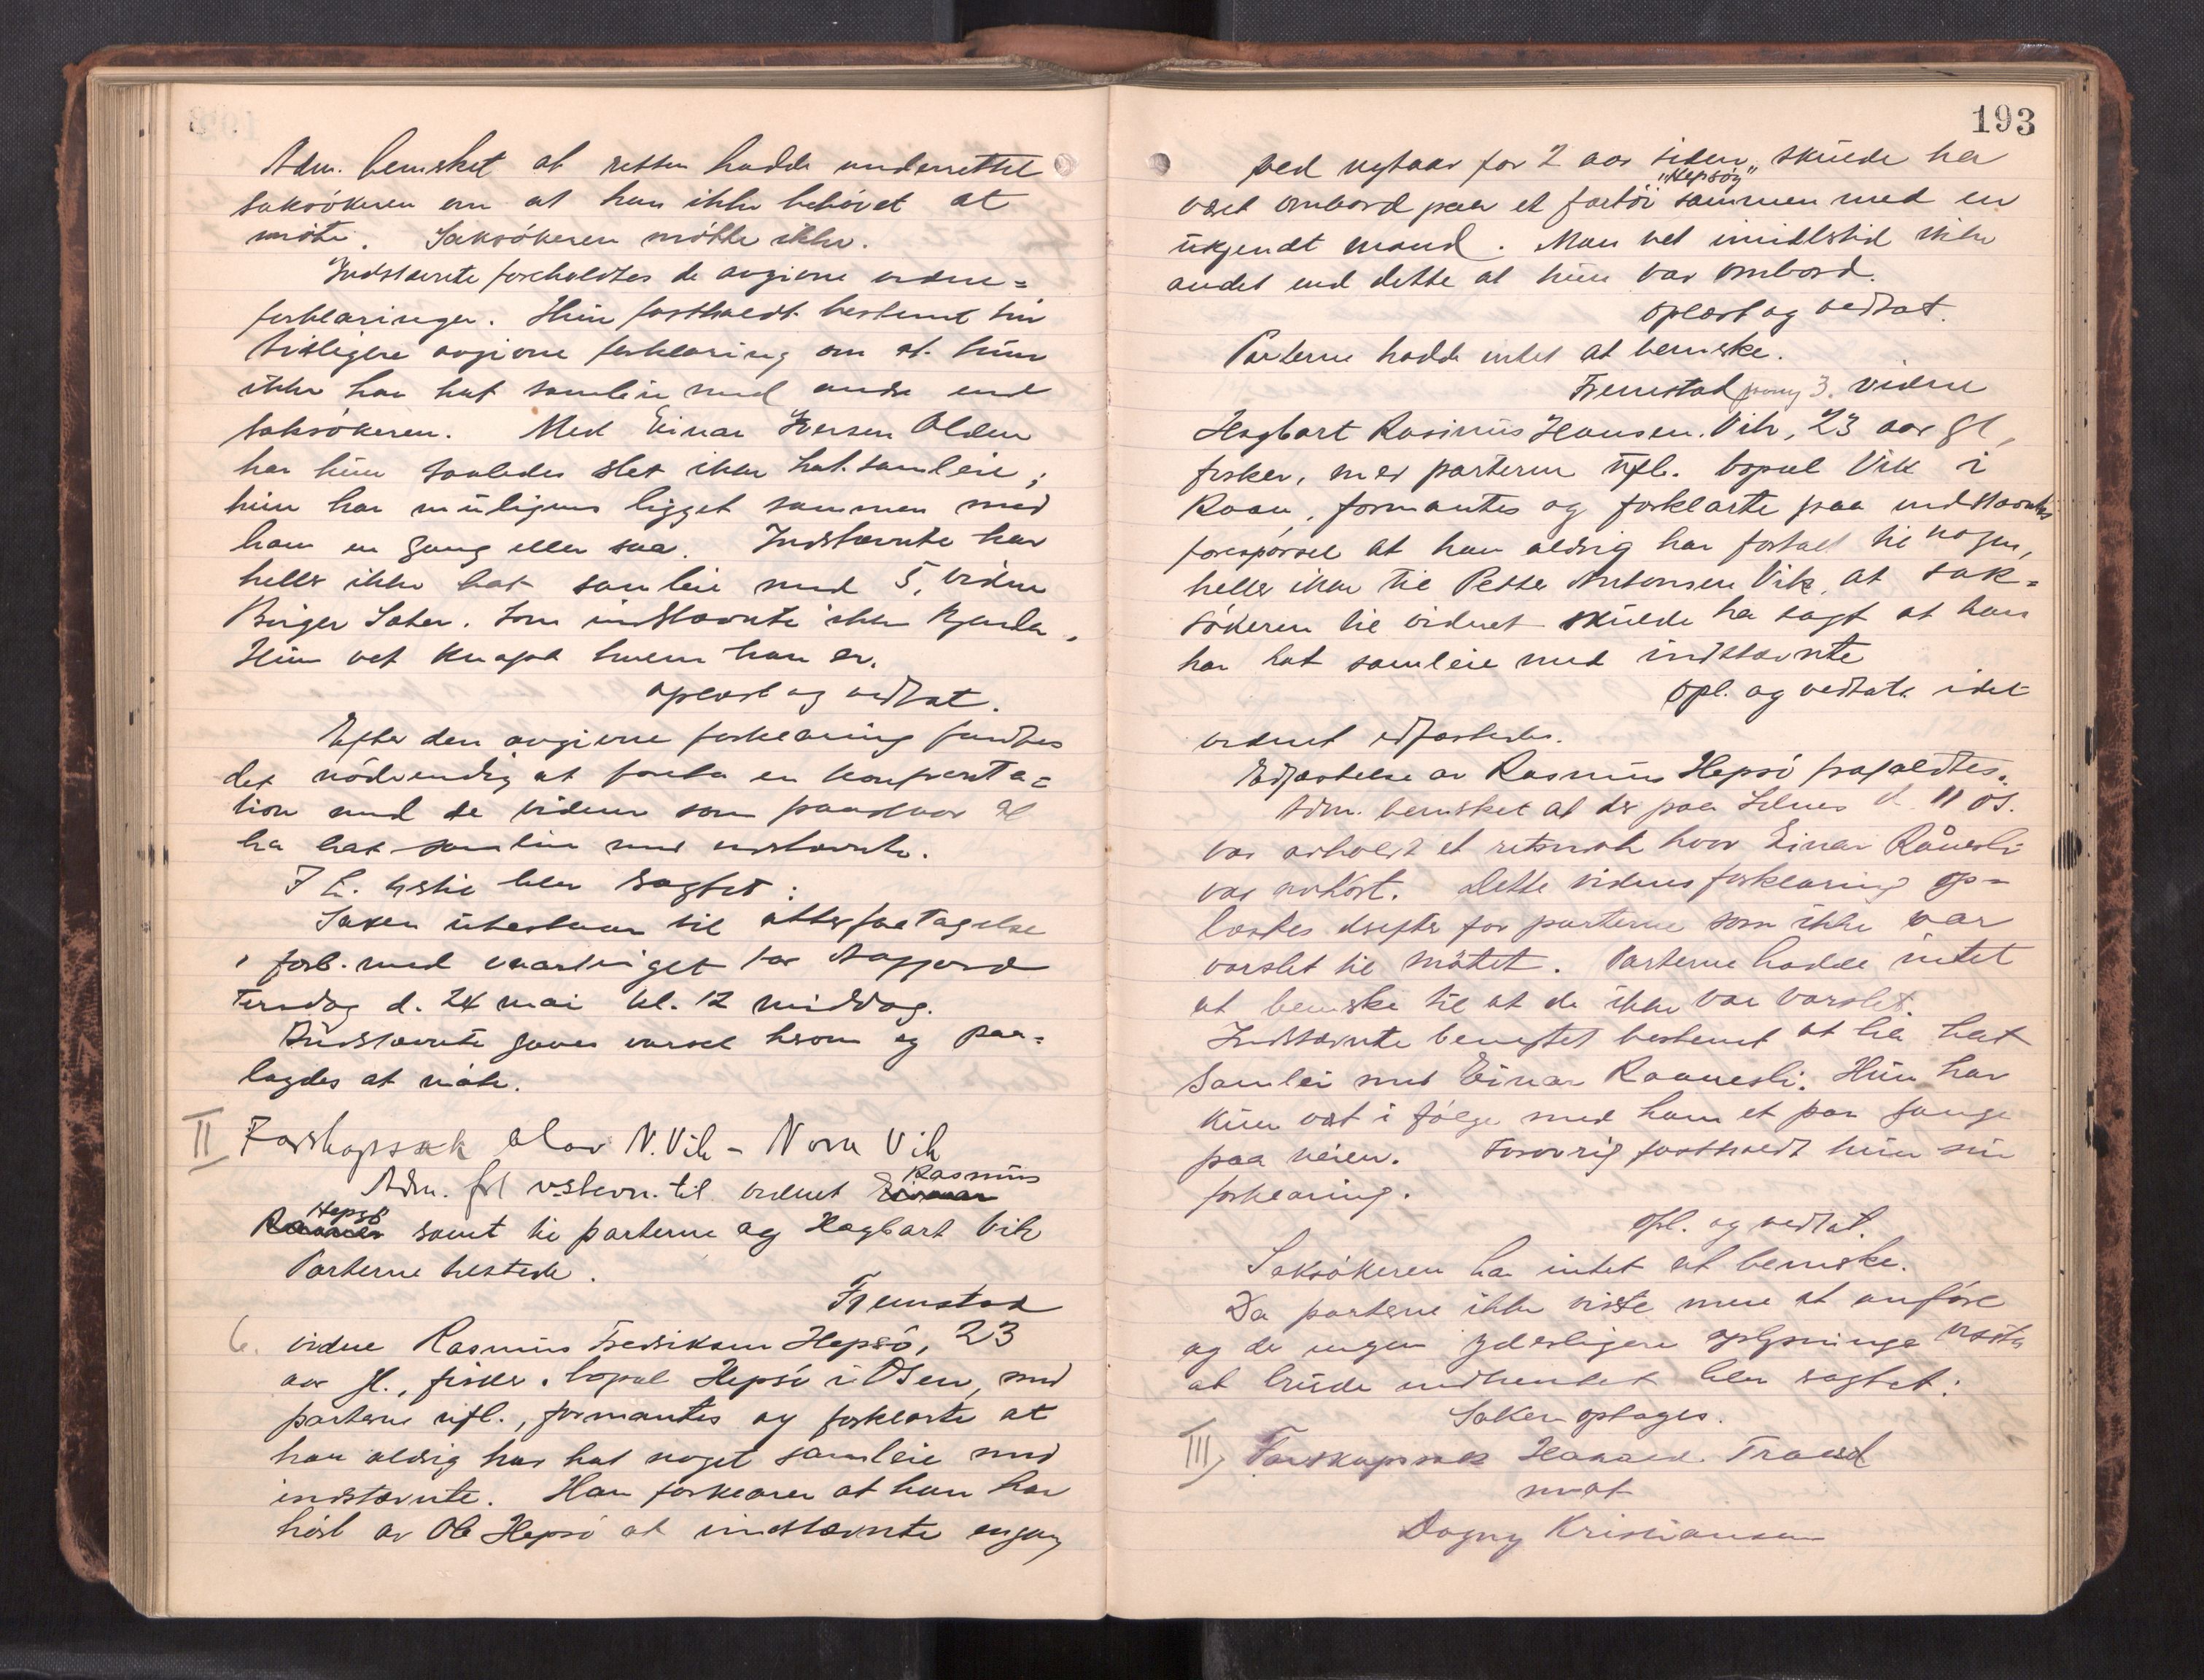 Adm. bemerket at retten hadde underrettet
saksökeren om at han ikke behövet at
möte. Saksökeren mötte ikke.
Indstævnte foreholdtes de avgivne vidne=
forklaringer. Hun fastholdt bestemt sin
tidligere avgivne forklaring om at hun
ikke har hat samleie med andre end
saksökeren. Med Einar Iversen Olden
har hun saaledes slet ikke hat samleie;
hun har muligens ligget sammen med
ham en gang eller saa. Indstævnte har
heller ikke hat samleie med 5. vidne
Birger Sater. som indstævnte ikke kjender.
Hun vet knapt hvem han er.
oplæst og vedtat.
Efter den avgivne forklaring fandtes
det nödvendig at foreta en konfronta=
tion med de vidner som paastaar at
ha hat samleie med indstævnte.
I h. hertil blev sagt:
Saken utestaar til atterforetagelse
i forb. med vaartinget for
Tirsdag d. 24 mai kl. 12 middag.
Indstævnte gaves varsel herom og paa=
lagdes at möte.
II Farskapssak Olav N. Vik - Nora Vik
Adm. frl v-stevn. til vidnet Rasmus
Hepsö samt til parterne og Hagbart Vik
Parterne tilstede.
Fremstod
6. vidne Rasmus Fredriksen Hepsö, 23
aar gl., fisker, bopæl Hepsö i Osen, med
parterne ufl., formantes og forklarte at
han aldrig har hat noget samleie med
indstævnte. Han forklarer at han har
hört av Ole Hepsö at indstævnte engang
193
ved nytaar for 2 aar siden, skulde ha
"Hepsöy"
været ombord paa et fartöi sammen med en
ukjendt mand. Man vet imidlertid ikke
andet end dette at hun var ombord.
oplæst og vedtat.
Parterne hadde intet at bemerke.
Fremstod paany 3. vidne
Hagbart Rasmus Hansen Vik, 23 aar gl,
fisker, med parterne ufl. bopæl Vik i
Roan, formantes og forklarte paa indstævntes
forespörsel at han aldrig har fortalt til nogen,
heller ikke til Petter Antonsen Vik, at sak=
sökeren til vidnet skulde ha sagt at han
har hat samleie med indstævnte
opl. og vedtatt idet
vidnet edfæstedes.
Edfæstelse av Rasmus Hepsö frafaldtes.
Adm. bemerket at der paa d. 11 ds.
var avholdt et retsmöte hvor Einar Rånesli
var avhört. Dette vidnes forklaring op=
læstes derefter for parterne som ikke var
varslet til mötet. Parterne hadde intet
at bemerke til at de ikke var varslet.
Indstævnte benegtet bestemt at ha hat
samleie med Einar Raanesli. Hun har
kun vært i fölge med ham et par gange
paa veien. Forövrig fastholdt hun sin
forklaring.
opl. og vedtat.
Saksökeren har intet at bemerke.
Da parterne ikke visste mere at anföre
og de ingen yderligere oplysninger
at burde indhentet blev sagt:
Saken optages.
III, Farskapssak Harald Trand
mot
Dagny Kristiansen